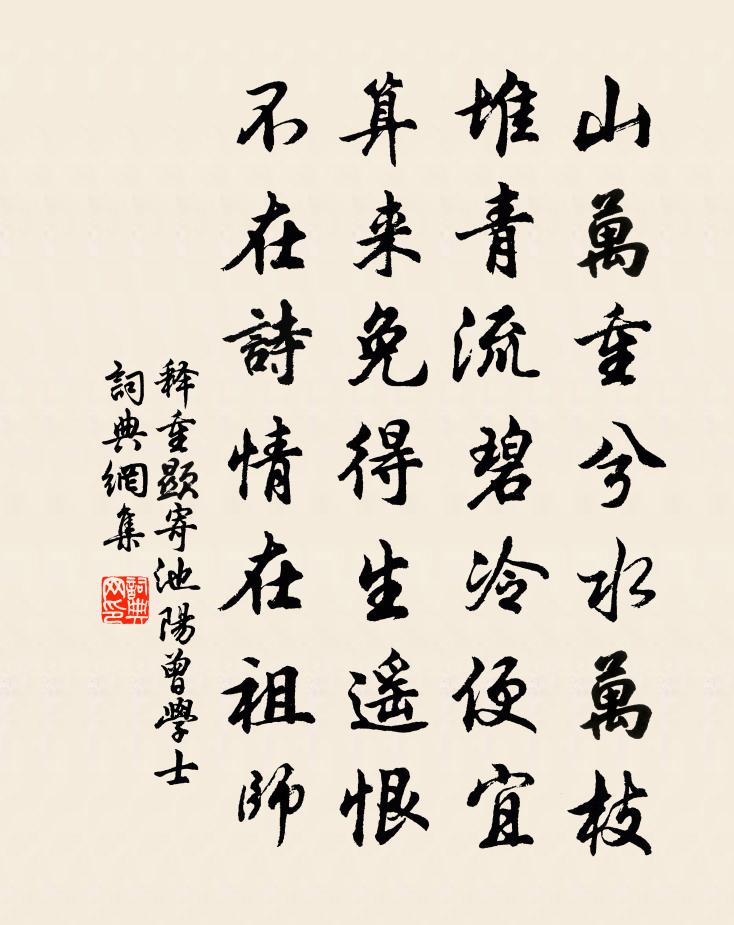 山萬重兮水萬枝
堆青流碧冷便宜
算来免得生遥恨
不在詩情在祖師
释重顯寄池陽曾學士
詞典網集
詞典網印